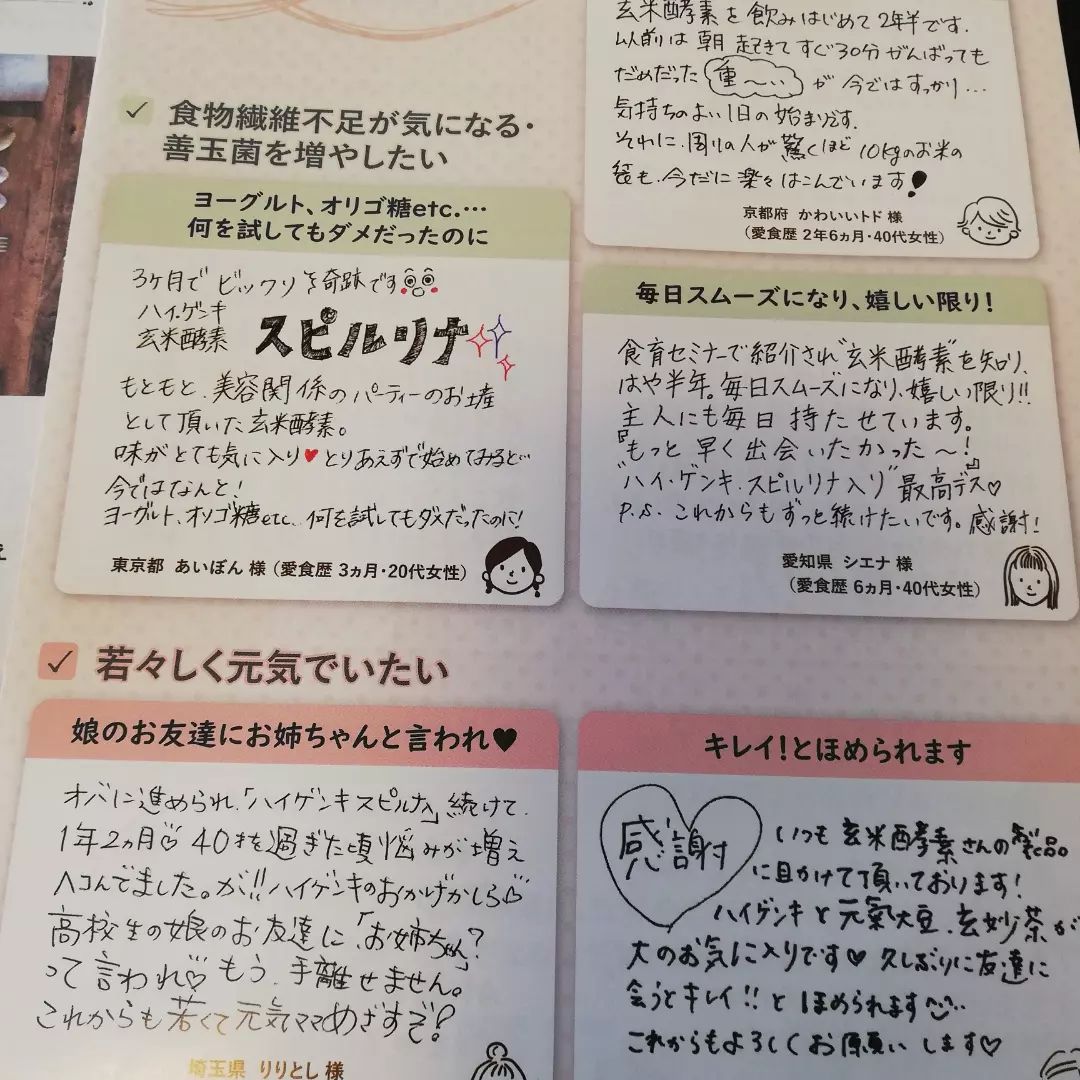 玄米酵素を飲みはじめて2年半です。
以前は朝起きてすぐ30分がんばっても
だめだった重〜いが今ではすっかり…
気持ちのよい1日の始まりです。
それに、周りの人が驚くほど10kgのお米の
袋も、今だに楽々はこんでいます!
京都府 かわいいトド 様
(愛食歴 2年6ヵ月・40代女性)
食物繊維不足が気になる・
善玉菌を増やしたい
ヨーグルト、オリゴ糖etc.…
何を試してもダメだったのに
3ヶ月でビックリな奇跡です
ハイ・ゲンキ
玄米酵素 スピルリナ
もともと、美容関係のパーティーのお土産
として頂いた玄米酵素。
味がとても気に入り♥とりあえずで始めてみると…
今ではなんと!
ヨーグルト、オリゴ糖etc…何を試してもダメだったのに!
東京都 あいぼん 様(愛食歴 3ヵ月・20代女性)
毎日スムーズになり、嬉しい限り!
食育セミナーで紹介され"玄米酵素"を知り、
はや半年。毎日スムーズになり、嬉しい限り!!
主人にも毎日持たせています。
『もっと早く出会いたかった〜!』
"ハイ・ゲンキ・スピルリナ入り"最高デス♡
P.S. これからもずっと続けたいです。感謝!
愛知県 シエナ 様
(愛食歴 6ヵ月・40代女性)
若々しく元気でいたい
娘のお友達にお姉ちゃんと言われ♥
オバに進められ、「ハイゲンキスピルナ」続けて、
1年2ヵ月♡40才を過ぎた頃悩みが増え
ヘコんでました。が!!ハイゲンキのおかげかしら♡
高校生の娘のお友達に「お姉ちゃん?」
って言われ♡もう、手離せません。
これからも若くて元気ママめざすぞ!
埼玉県 りりとし 様
キレイ!とほめられます
感謝 いつも玄米酵素さんの製品。
に目かけて頂いております!
ハイゲンキと元氣大豆、玄妙茶が
大のお気に入りです♥ 久しぶりに友達に
会うとキレイ!!とほめられます
これからもよろしくお願いします♡